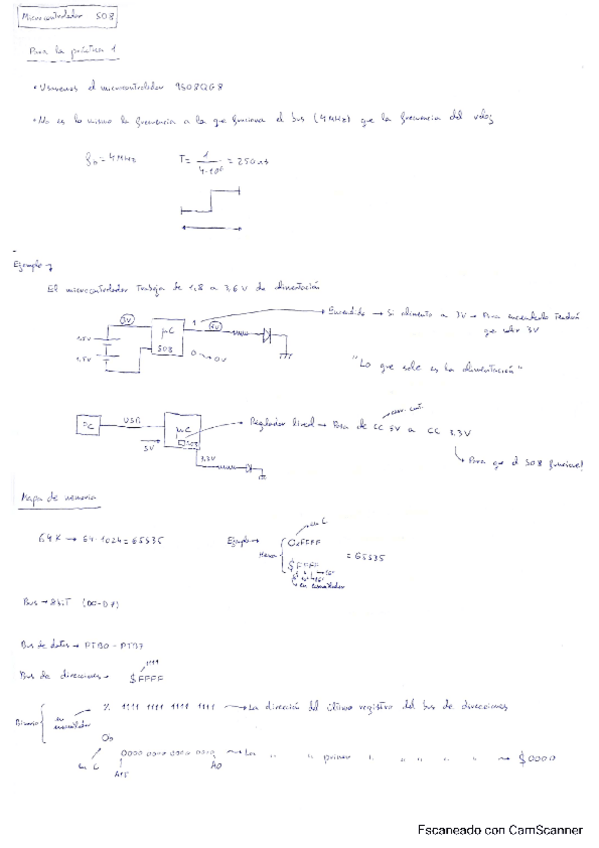 Microcontrolador S08
Para la práctica 1
• Usaremos el microcontrolador 9S08QG8
• No es lo mismo la frecuencia a la que funciona el bus (4MHz) que la frecuencia del reloj
fb = 4MHz T = 1/4·10⁶ = 250ns
Ejemplo →
El microcontrolador Trabaja de 1,8 a 3,6 V de alimentación
3V
1.5V
1.5V
μC
S08
1
0 → 0V
Encendido → Si alimento a 3V → Para encenderlo Tendrá
que salir 3V
"Lo que sale es la alimentación"
PC
USB
5V
μC
3.3V
Regulador lineal → Pasa de CC 5V a CC 3.3V
Para que el S08 funcione!
Mapa de memoria
64K → 64·1024 = 65535
Ejemplo →
en C
Hexa
0xFFFF
$FFFF
= 65535
en ensamblador
Bus → 8biT (D0-D7)
Bus de datos → PTB0 - PTB7
Bus de direcciones → $FFFF
1111
Binario
en ensamblador
% 1111 1111 1111 1111 → La dirección del último registro del bus de direcciones
0b
en C
0000 0000 0000 0000 → La " " primer " " " " " → $0000
A15
A0
Escaneado con CamScanner